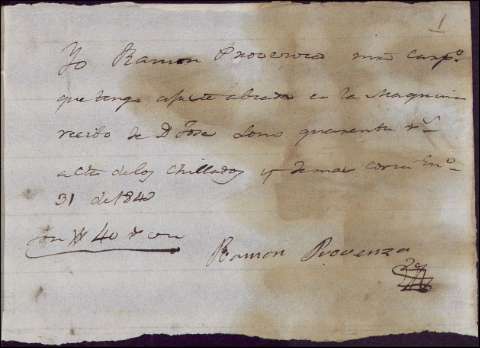 1
Yo Ramon Provenza carpo.
que tengo abierta en la Maquina
recibo de Dn Jose Lono quarenta rs
a cta de los Chillados y demas Eno
31 de 1840
son # 40 r vn
Ramon Provenza